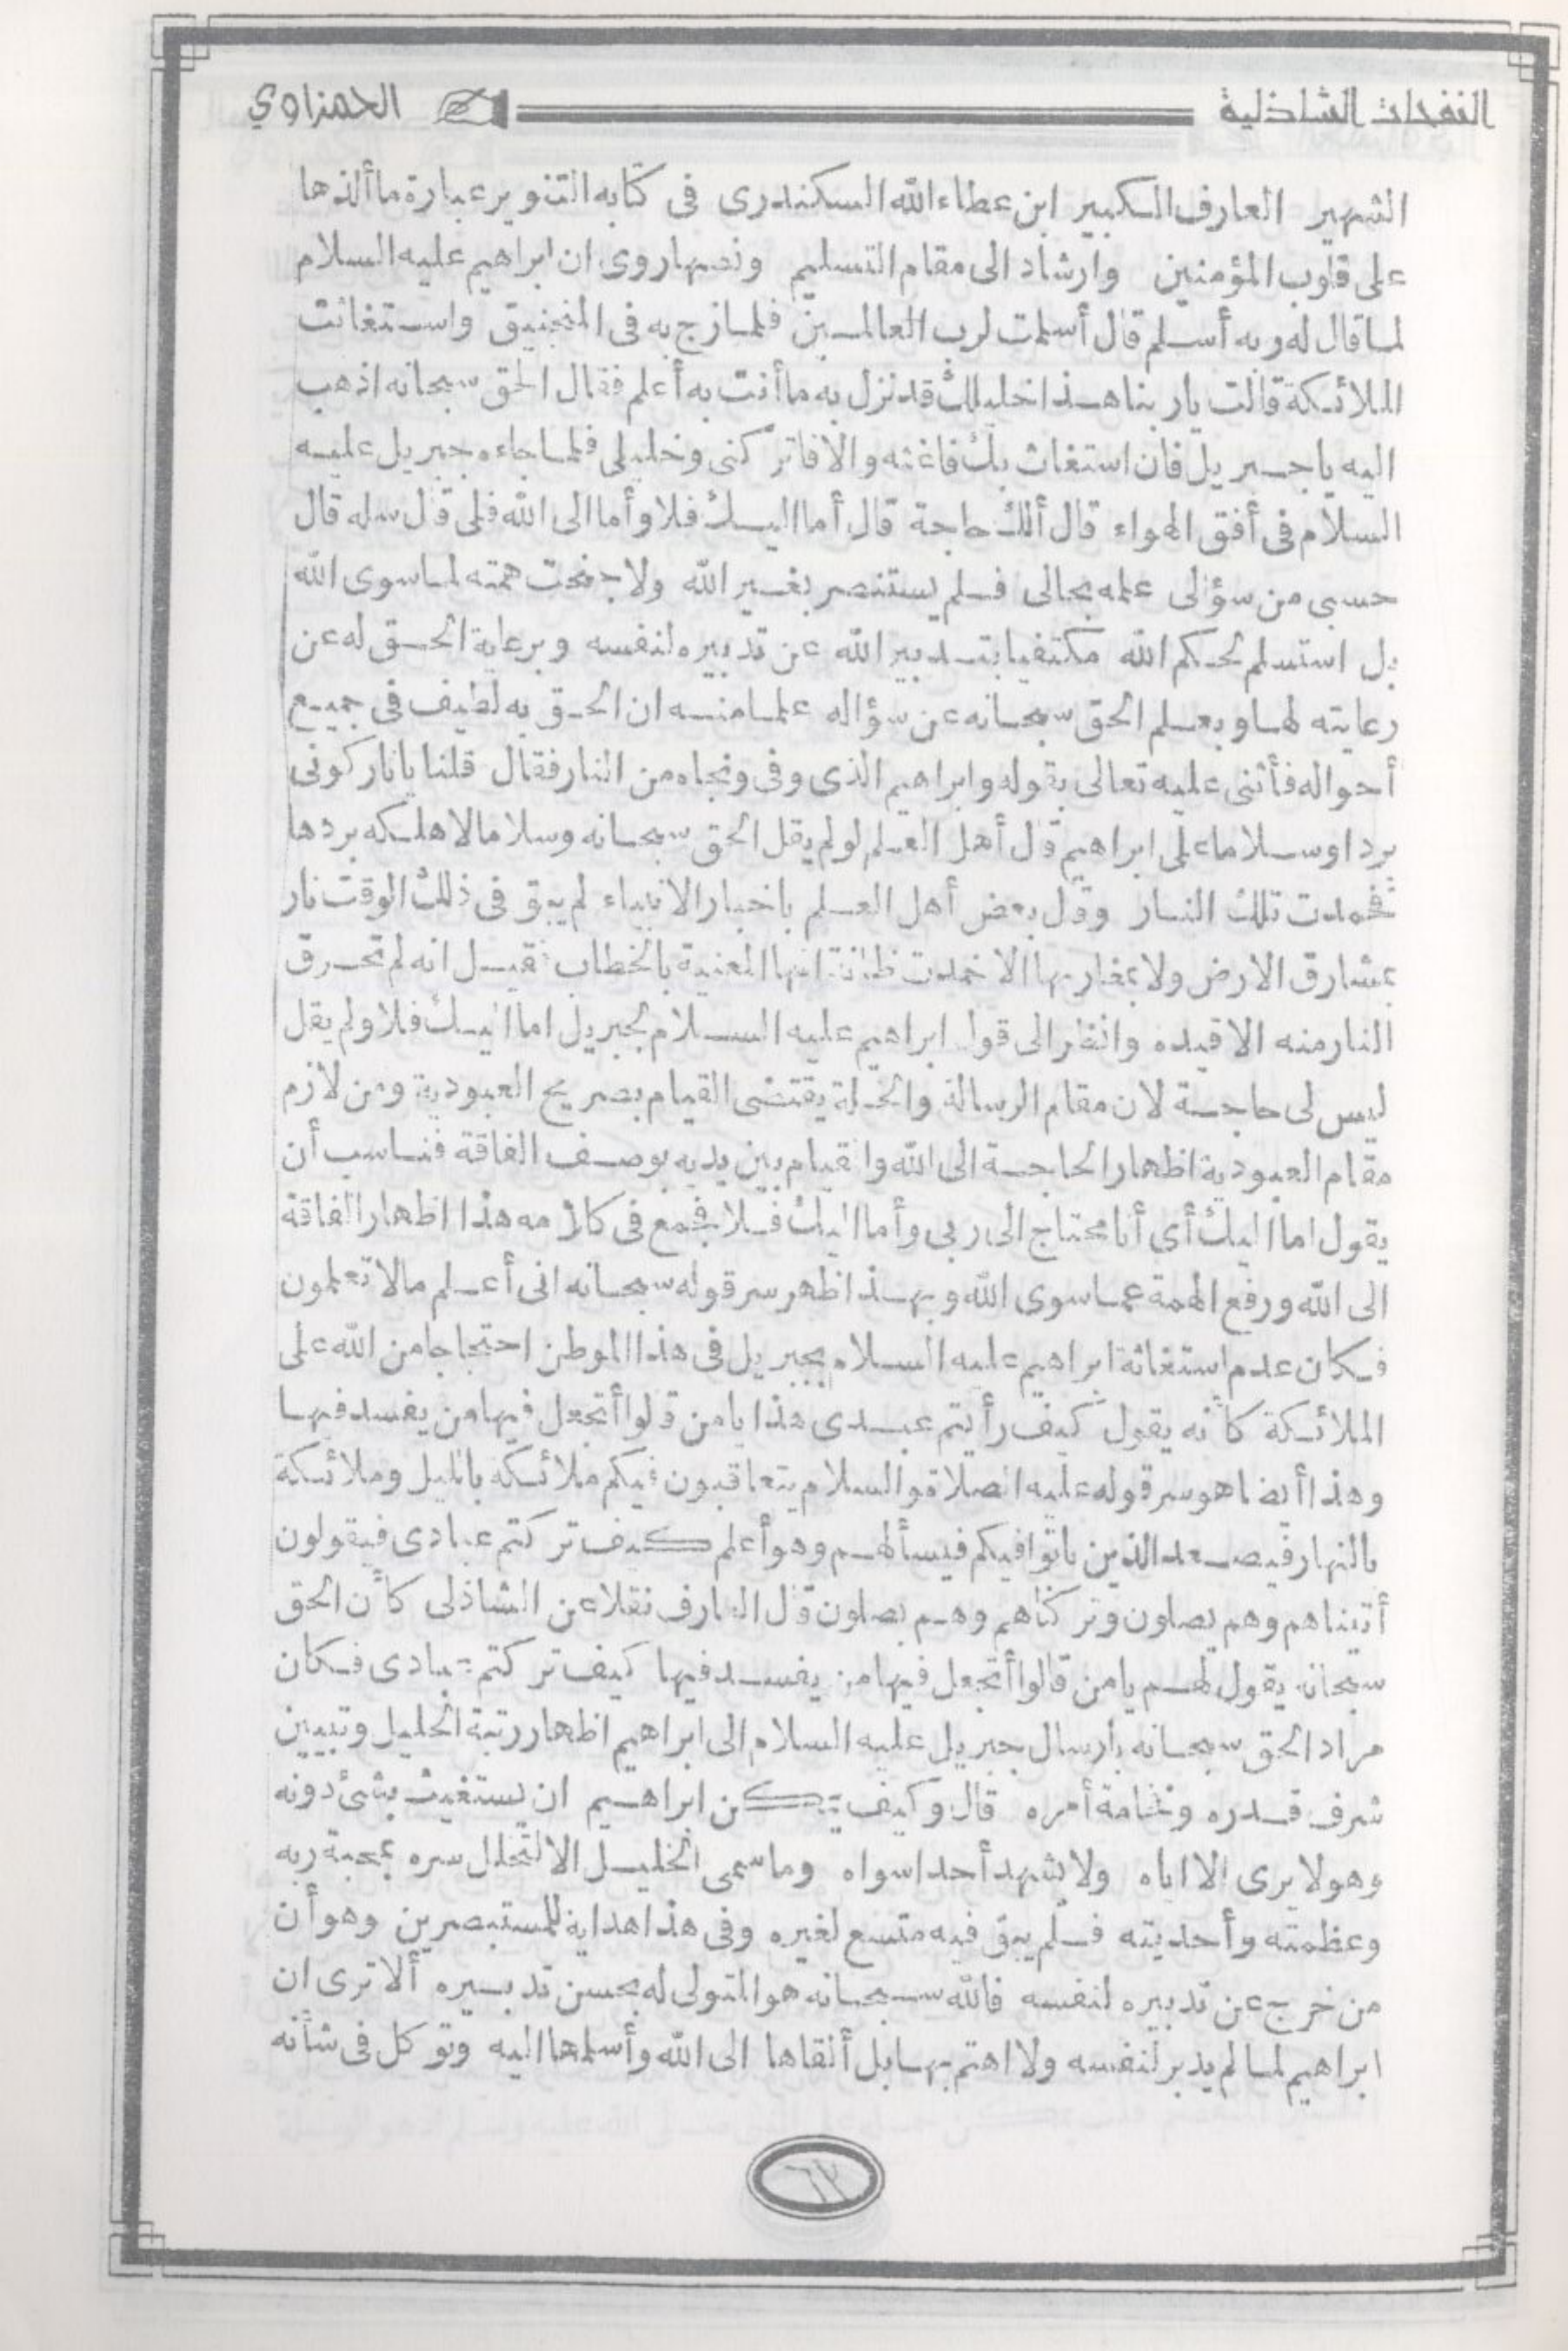 النفحات الشاذلية
الحمزاوي
الشهير العارف الكبير ابن عطاء الله السكندرى فى كتابه التنوير عبارة ما ألذها
على قلوب المؤمنين وارشاد الى مقام التسليم ونصها روى ان ابراهيم عليه السلام
لما قال له ربه أسلم قال أسلمت لرب العالمين فلما زج به فى المنجنيق واستغاثت
الملائكة قالت يا ربنا هذا خليلك قد نزل به ما أنت به أعلم فقال الحق سبحانه اذهب
اليه يا جبريل فان استغاث بك فاغثه والا فاتركنى وخليلى فلما جاءه جبريل عليه
السلام فى أفق الهواء قال ألك حاجة قال أما اليك فلا وأما الى الله فلى قال سله قال
حسبى من سؤالى علمه بحالى فلم يستنصر بغير الله ولا جنحت همته لما سوى الله
بل استسلم لحكم الله مكتفيا بتدبير الله عن تدبيره لنفسه وبرعاية الحق له عن
رعايته لها وبعلم الحق سبحانه عن سؤاله علما منه ان الحق به لطيف فى جميع
أحواله فأثنى عليه تعالى بقوله وابراهيم الذى وفى ونجاه من النار فقال قلنا يا نار كونى
بردا وسلاما على ابراهيم قال أهل العلم لو لم يقل الحق سبحانه وسلاما لاهلكه بردها
فخمدت تلك النار وقال بعض أهل العلم باخبار الانبياء لم يبق فى ذلك الوقت نار
بمشارق الارض ولا بمغاربها الا خمدت ظانة انها المعنية بالخطاب فقيل انه لم تحرق
النار منه الا قيده وانظر الى قول ابراهيم عليه السلام لجبريل اما اليك فلا ولم يقل
ليس لى حاجة لان مقام الرسالة والخلة يقتضى القيام بصريح العبودية ومن لازم
مقام العبودية اظهار الحاجة الى الله والقيام بين يديه بوصف الفاقة فناسب أن
يقول اما اليك أى أنا محتاج الى ربى وأما اليك فلا فجمع فى كلامه هذا اظهار الفاقة
الى الله ورفع الهمة عما سوى الله وبهذا ظهر سر قوله سبحانه انى أعلم مالا تعلمون
فكان عدم استغاثة ابراهيم عليه السلام بجبريل فى هذا الموطن احتجاجا من الله على
الملائكة كأنه يقول كيف رأيتم عبدى هذا يا من قالوا أتجعل فيها من يفسد فيها
وهذا أيضا هو سر قوله عليه الصلاة والسلام يتعاقبون فيكم ملائكة بالليل وملائكة
بالنهار فيصعد الذين باتوا فيكم فيسألهم وهو أعلم كيف تركتم عبادى فيقولون
أتيناهم وهم يصلون وتركناهم وهم يصلون قال العارف نقلا عن الشاذلى كأن الحق
سبحانه يقول لهم يا من قالوا أتجعل فيها من يفسد فيها كيف تركتم عبادى فكان
مراد الحق سبحانه بارسال جبريل عليه السلام الى ابراهيم اظهار رتبة الخليل وتبيين
شرف قدره وفخامة أمره قال وكيف يمكن ابراهيم ان يستغيث بشئ دونه
وهو لا يرى الا اياه ولا يشهد أحدا سواه وما سمى الخليل الا لتخلل سره بمحبة ربه
وعظمته وأحديته فلم يبق فيه متسع لغيره وفى هذا هداية للمستبصرين وهو أن
من خرج عن تدبيره لنفسه فالله سبحانه هو المتولى له بحسن تدبيره ألا ترى ان
ابراهيم لما لم يدبر لنفسه ولا اهتم بها بل ألقاها الى الله وأسلمها اليه وتوكل فى شأنه